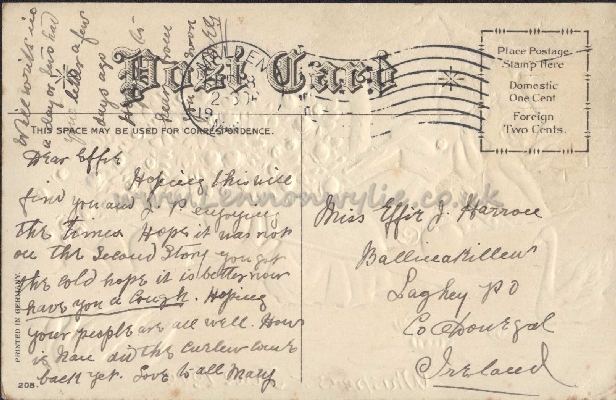 Will write in
a day or two had
your letter a few
days ago
hear from
you soon
Post Card
MALDEN
Place Postage
Stamp Here
Domestic
One Cent
Foreign
Two Cents.
THIS SPACE MAY BE USED FOR CORRESPONDENCE.
Dear Effie
Hoping this will
find you and J P enjoying
the Times Hope it was not
on the Second Story you got
the cold hope it is better now
have you a cough. Hoping
your people are all well. How
is did the curlew come
back yet. Love to all Mary
Miss Effie J. Harron
Ballinakillew
Laghey PO
Co Donegal
Ireland
PRINTED IN GERMANY.
208.
www.Lennonwylie.co.uk